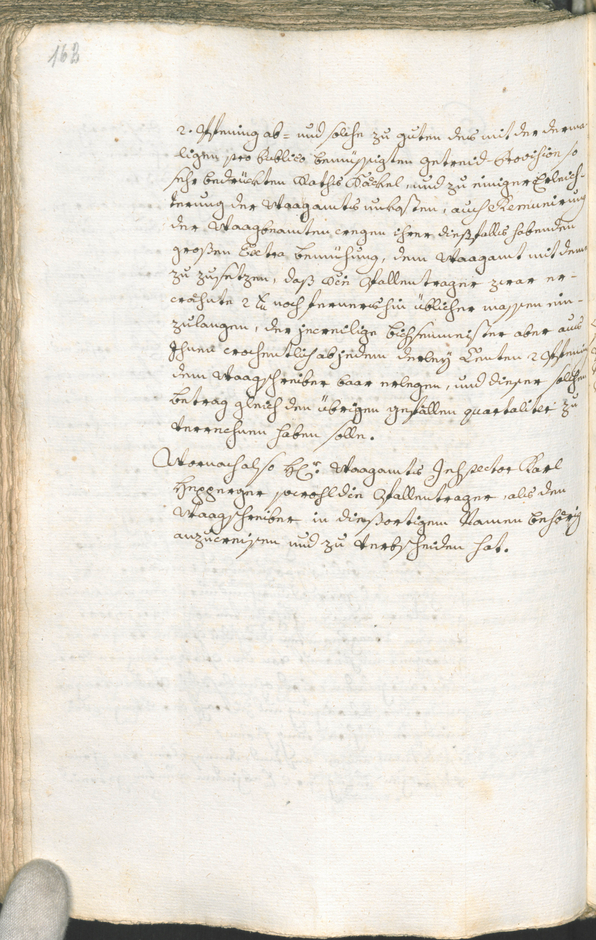 163
2. Pfening ab- und solche zu guten des mit der derma-
ligen pro Publico bemüssigten getreid-Provision so
sehr bedrückten Raths Säckel und zu einiger Erleich-
terung der Waagamts unkosten, auch Remunerirung
der Waagbeamten wegen ihrer dießfalls habenden
großen Extra bemühung, dem Waagamt mit deme
zu zusetzen, daß die Ballentrager zwar er-
wöhnte 2 noch fernershin üblicher massen ein-
zulangen, der jeweilige bichsenmeister aber aus
Ihnen wochentlich ab jedem derley Centen 2 Pfening
dem Waagschreiber baar erlegen, und dieser solchen
betrag gleich den übrigen gefällen quartaliter zu
verrechnen haben solle.
Wornach also Hr. Waagamts Inspector Karl
Hepperger sowohl die Ballentrager, als den
Waagschreiber in dießortigem Namen behörig
anzuweisen und zu verbscheiden hat.